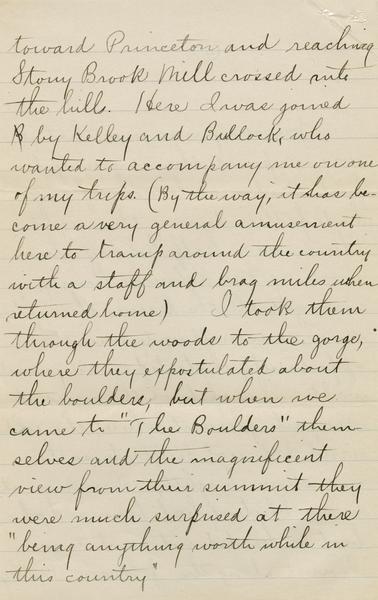 toward Princeton and reaching
Stony Brook Mill crossed into
the hill. Here I was joined
by Kelley and Bullock, who
wanted to accompany me on one
of my trips. (By the way, it has be-
come a very general amusement
here to tramp around the country
with a staff and brag miles when
returned home) I took them
through the woods to the gorge,
where they expostulated about
the boulders, but when we
came to "The Boulders" them-
selves and the magnificent
view from their summit they
were much surprised at there
"being anything worth while in
this country"